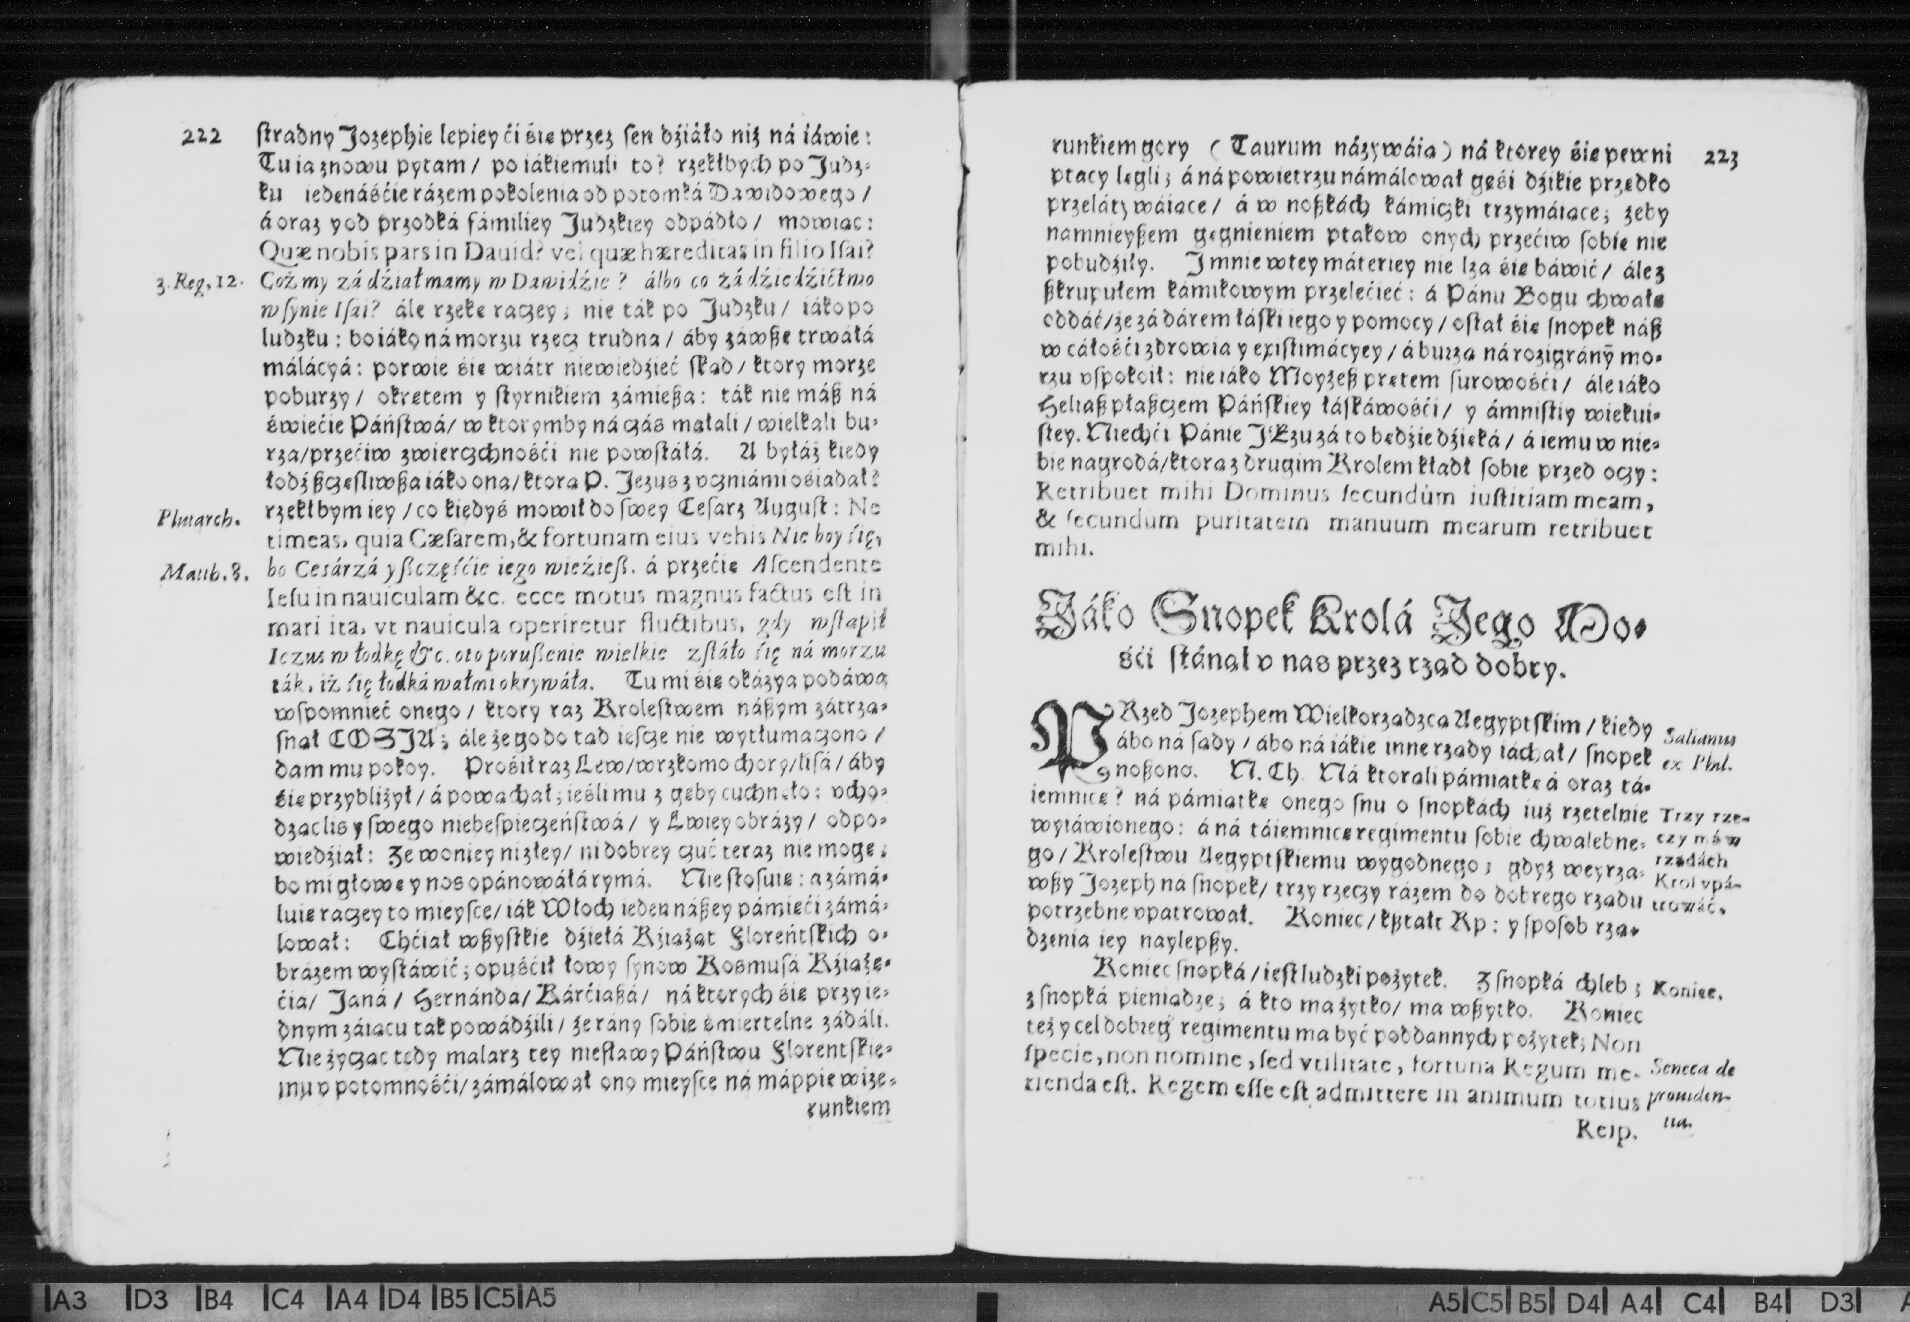 222
ſtradny Jozephie lepiey ći śię przez ſen dźiáło niż ná iáwie:
Tu ia znowu pytam / po iákiemuli to? rzekłbych po Judz-
ku iedenáśćie rázem pokolenia od potomká Dawidowego /
á oraz y od przodká fámiliey Judzkiey odpádło / mowiąc:
Quæ nobis pars in Dauid? vel quæ hæreditas in filio Iſai?
3. Reg. 12.
Coż my zá dźiał mamy w Dawidźie? álbo co zá dźiedźictwo
w ſynie Iſai? ále rzekę raczey; nie ták po Judzku / iáko po
ludzku: bo iáko ná morzu rzecz trudna / áby záwße trwáłá
málácyá: porwie śię wiátr niewiedźieć ſkąd / ktory morze
poburzy / okrętem y ſtyrnikiem zámießa: ták nie máß ná
świećie Páńſtwá / w ktorymby ná czás małali / wielkali bu-
rza / przećiw zwierzchnośći nie powſtáłá. A byłáż kiedy
łodź ßczęśliwßa iáko ona / ktorą P. Jezus z vczniámi ośiadał?
Plutarch.
rzekłbym iey / co kiedyś mowił do ſwey Ceſarz Auguſt: Ne
timeas, quia Cæſarem, & fortunam eius vehis Nie boy ſię,
bo Ceſárzá y ßczęſćie iego wieźieß. á przećię Aſcendente
Matth. 8.
Ieſu in nauiculam &c. ecce motus magnus factus eſt in
mari ita, vt nauicula operiretur fluctibus, gdy wſtąpił
Iezus w łodkę &c. oto porußenie wielkie zſtáło ſię ná morzu
ták, iż ſię łodká wałmi okrywáła. Tu mi śię okázya podáwa
wſpomnieć onego / ktory raz Kroleſtwem náßym zátrzą-
ſnął COSIU; ále że go do tąd ieſcze nie wytłumaczono /
dam mu pokoy. Prośił raz Lew / wrzkomo chory / liſá / áby
śię przybliżył / á powąchał; ieśli mu z gęby cuchnęło: vcho-
dząc lis y ſwego niebeſpieczeńſtwá / y Lwiey obrázy / odpo-
wiedźiał: Że woniey niż złey / ni dobrey czuć teraz nie mogę;
bo mi głowę y nos opánowáłá rymá. Nie ſtoſuię: a zámá-
luię raczey to mieyſce / iák Włoch ieden náßey pámięći zámá-
lował: Chćiał wßyſtkie dźiełá Kźiążąt Florentſkich o-
brázem wyſtáwić; opuśćił łowy ſynow Koſmuſá Kźiążę-
ćia / Janá / Hernándá / Kárćiaßá / ná ktorych śię przy ie-
dnym záiącu tak powádźili / że rány ſobie śmiertelne zádáli.
Nie życząc tedy malarz tey nieſławy Páńſtwu Florentſkie-
mu v potomnośći / zámálował ono mieyſce ná máppie wize-
runkiem
223
runkiem gory ( Taurum názywáią ) ná ktorey śię pewni
ptacy lęgli; á ná powietrzu námálował gęśi dźikie prędko
przelátywáiące / á w noßkách kámiczki trzymáiące; żeby
namnieyßem gęgnieniem ptakow onych przećiw ſobie nie
pobudźiły. J mnie w tey máteriey nie lza śię báwić / ále z
ßkrupułem kámikowym przelećieć: á Pánu Bogu chwałę
oddáć / że zá dárem łáſki iego y pomocy / oſtał śię ſnopek náß
w cáłośći zdrowia y exiſtimácyey / á burzą ná rozigránÿ mo-
rzu vſpokoił: nie iáko Moyżeß prętem ſurowośći / ále iáko
Heliaß płaßczem Páńſkiey łáſkáwośći / y ámniſtiy wiekui-
ſtey. Niechći Pánie JEzu zá to będźie dźięká / á iemu w nie-
bie nagrodá / ktorą z drugim Krolem kłádł ſobie przed oczy:
Retribuet mihi Dominus ſecundùm iuſtitiam meam,
& ſecundum puritatem manuum mearum retribuet
mihi.
Jáko Snopek Krolá Jego Mo-
śći ſtánął v nas przez rząd dobry.
PRzed Jozephem Wielkorządzcą Aegyptſkim / kiedy
ábo ná ſądy / ábo ná iákie inne rządy iáchał / ſnopek
noßono. N. Ch. Ná ktorąli pámiątkę á oraz tá-
Salianus
ex Phil.
iemnicę? ná pámiątkę onego ſnu o ſnopkách iuż rzetelnie
wyiáwionego: á ná táiemnicę regimentu ſobie chwalebne-
go / Kroleſtwu Aegyptſkiemu wygodnego; gdyż weyrza-
wßy Jozeph ná ſnopek / trzy rzeczy rázem do dobrego rządu
potrzebne vpatrował. Koniec / kßtałt Rp: y ſpoſob rzą-
dzenia iey naylepßy.
Trzy rze-
czy má w
rządách
Krol vpá-
trowáć.
Koniec ſnopká / ieſt ludzki pożytek. Z ſnopká chleb;
z ſnopká pieniądze; á kto ma żytko / ma wßytko. Koniec
Koniec.
też y cel dobreg° regimentu ma być poddannych pożytek; Non
ſpecie, non nomine, ſed vtilitate, fortuna Regum me-
tienda eſt. Regem eſſe eſt admittere in animum totius
Seneca de
prouiden-
tia.
Reip.